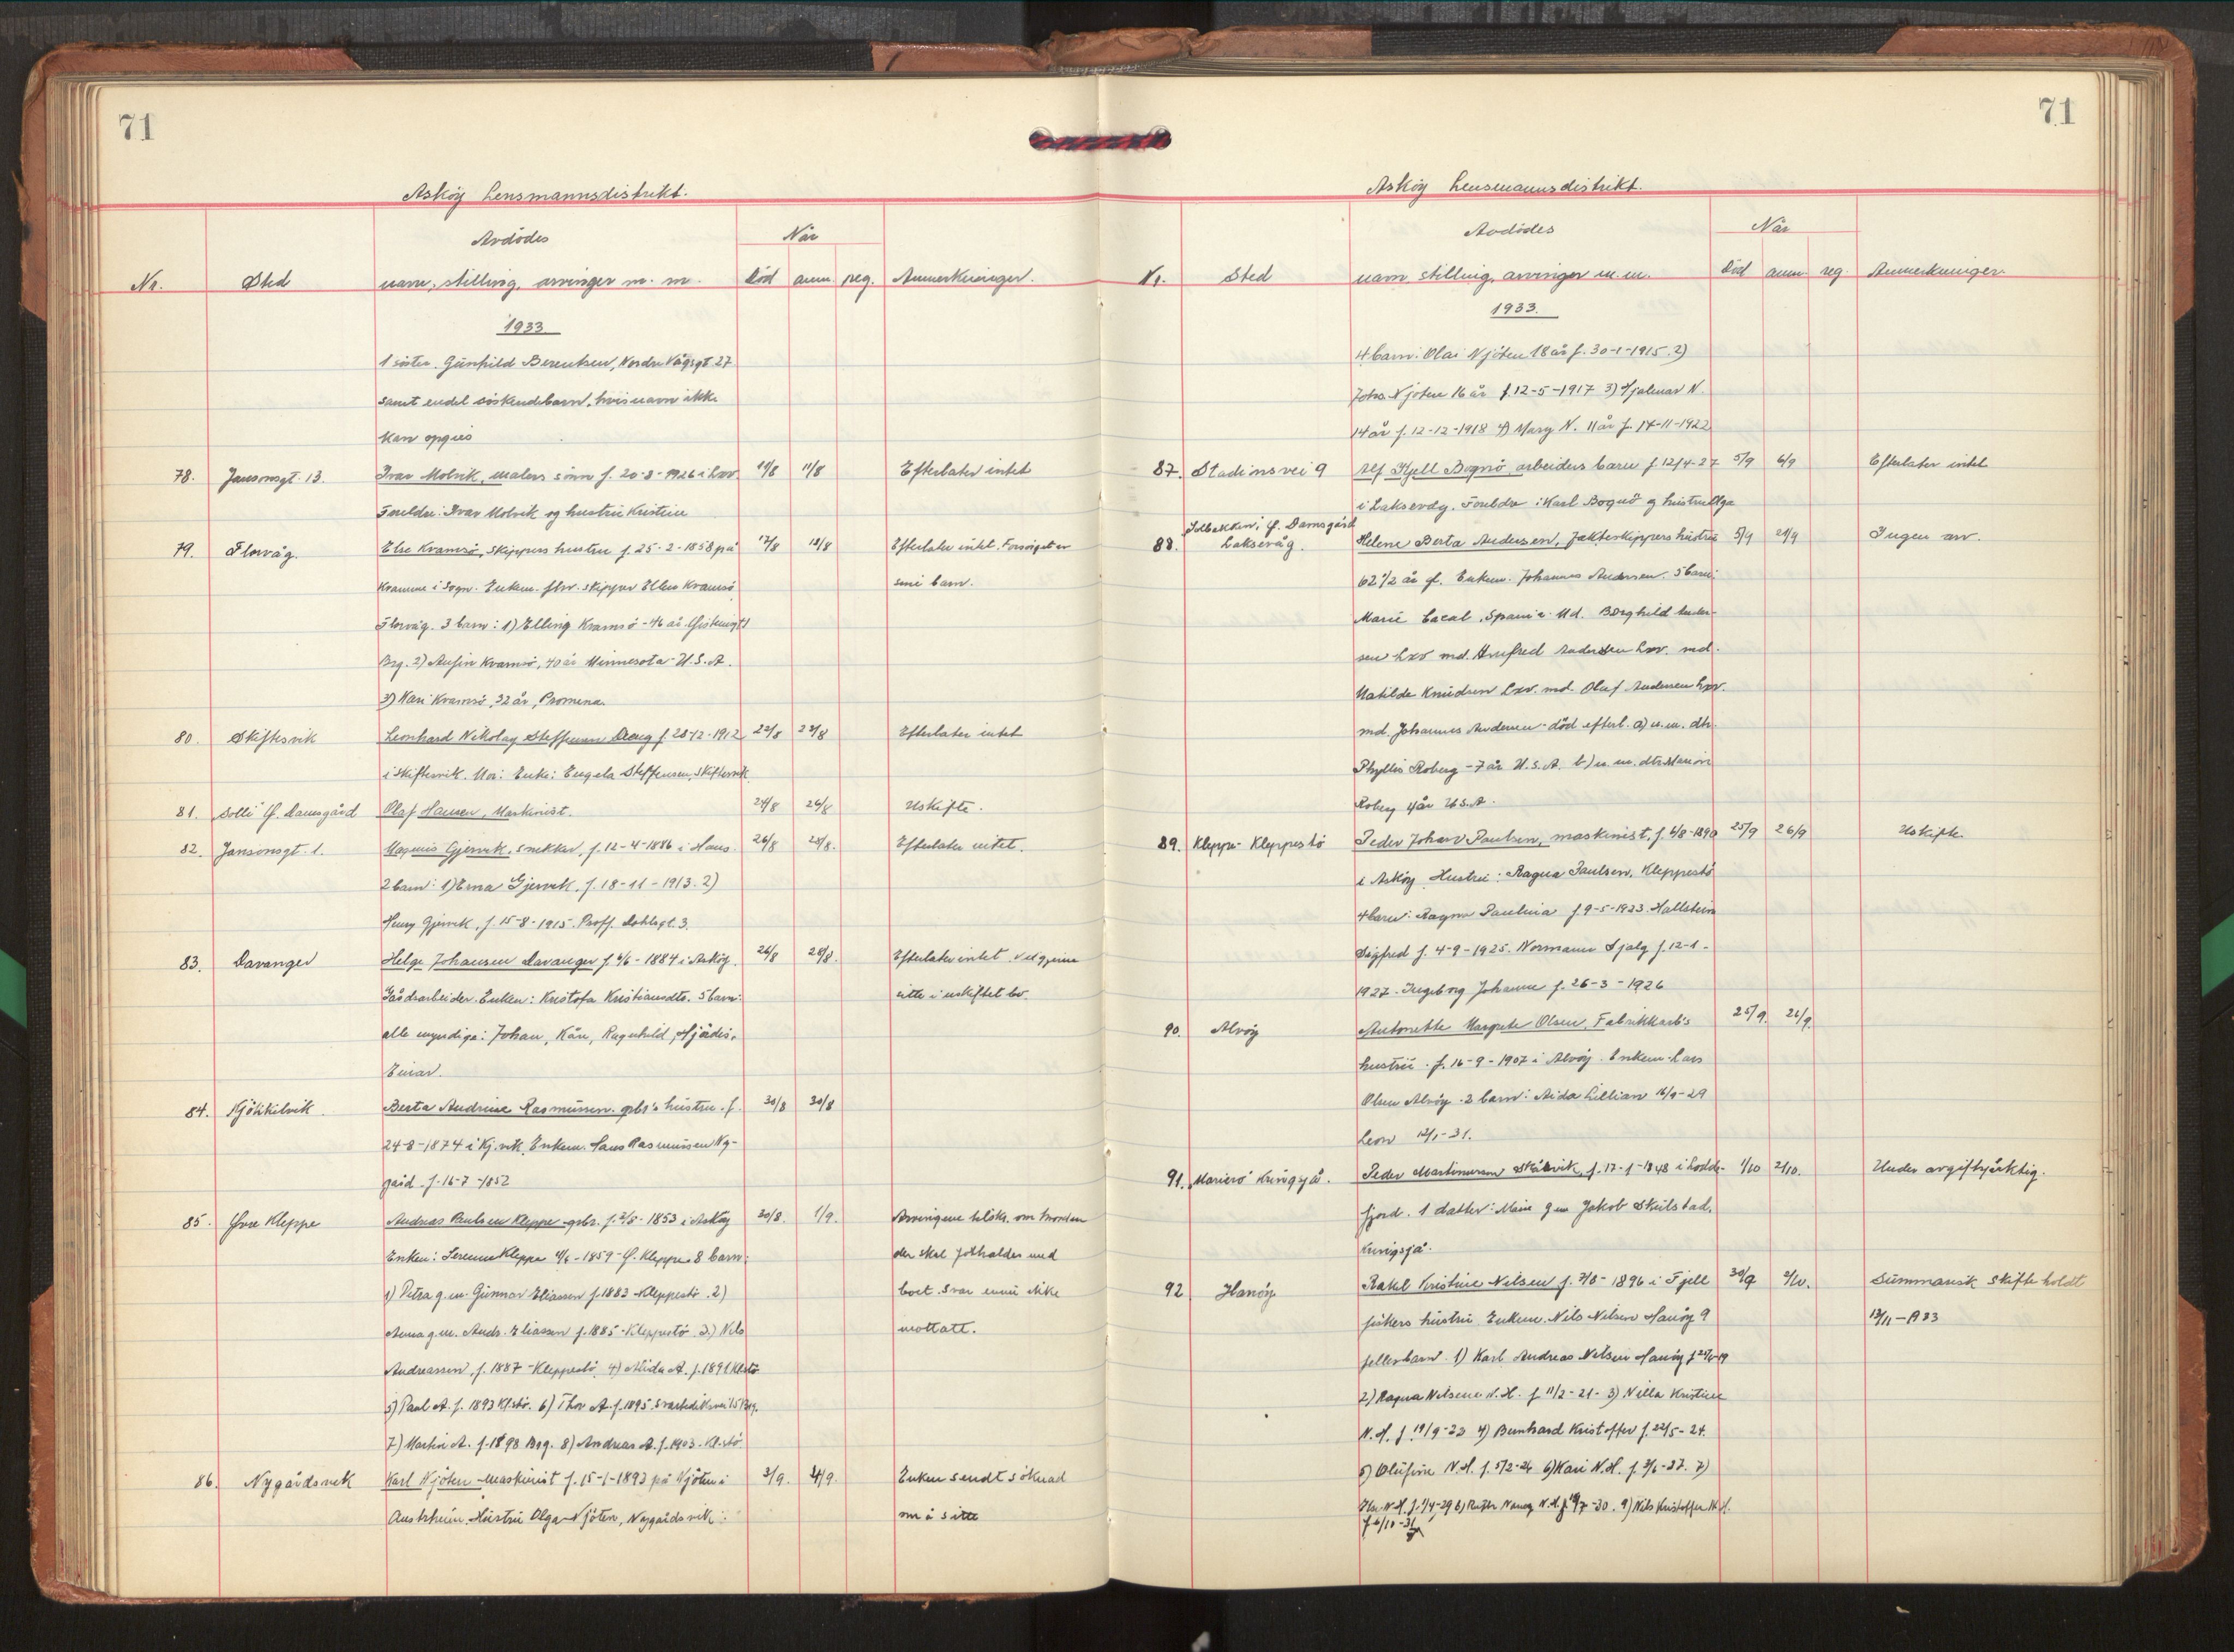 71
Askøy Lensmannsdistrikt.
Avdødes
Når
Nr. Sted navn, stilling, arvinger m. m. död anm. reg. Anmerkninger.
1933
1 söster. Gunhild Berentsen, Nordre Vågsgt. 27
samt endel söskendebarn, hvis navn ikke
kan opgies
78. Jansonsgt. 13. Ivar Molvik, malers sönn f. 20-3-1926 i Lxv. 11/8 Efterlater intet
Foreldre: Ivar Molvik og hustru Kristine
79. Florvåg. Else Kramsö, skippers hustru f. 25-2-1858 på 17/8 18/8 Efterlater intet. Forsörget av
i Sogn. Enkem. fhv. skipper Kramsö sine barn.
Florvåg. 3 barn: 1) Elling Kramsö - 46 år
Brg. 2) Kramsö, 40 år Minnesota U.S.A.
3) Kari Kramsö, 32 år,
80. Skiftesvik Leonhard Nikolay Steffensen f. 28-12-1912 22/8 23/8 Efterlater intet
i Skiftesvik. Mor: Enke: Engela Steffensen, Skiftesvik
81. Solli Damsgård Olaf Hansen, Maskinist. 24/8 26/8 Uskifte.
82. Jansonsgt. 1. Magnus Gjervik, snekker, f. 12-4-1886 i Haus. 26/8 28/8. Efterlater intet.
2 barn: 1) Erna Gjervik, f. 18-11-1913. 2)
Henry Gjervik, f. 15-8-1915. Proff. Dahlsgt. 3.
83. Davanger Helge Johansen Davanger f. 6/6-1884 i Asköy. 26/8 28/8. Efterlater intet. Vil gjerne
Gårdsarbeider. Enken: Kristofa Kristiansdtr. 5 barn: sitte i uskiftet bo.
alle myndige: Johan, Kåre, Ragnhild, Hjördis,
Einar.
84. Kjökkelvik. Berta Andrine Rasmussen. gbr's hustru. f. 30/8 30/8
24-8-1874 i Kj.vik. Enkem. Hans Rasmussen Ny-
gård f. 16-7-1852
85. Övre Kleppe Andreas Paulsen Kleppe gbr. f. 1853 i Asköy 30/8. 1/9. Arvingene tilskr. om hvordan
Enken: Kleppe 1859 Ö. Kleppe. 8 barn: der skal forholdes med
1) Petra g.m. Gunnar Eliassen f. 1883 Kleppestö. 2) boet. Svar ennu ikke
Anna g.m. Andr. Eliassen f. 1885 - Kleppestö 3.) Nils mottatt.
Andreassen, f. 1887 - Kleppestö 4) Alida A. f. 1891 Kl.stö
5) Paul A. f. 1893 Kl.stö. 6) Thor A. f. 1895. Svartediksvei 15 Brg.
7) Martin A. f. 1898 Brg. 8) Andreas A. f. 1903. Kl.stö
86. Nygårdsvik Karl Njöten - maskinist f. 15-1-1893 på Njöten i 3/9. 4/9. Enken sendt söknad
Austrheim. Hustru Olga Njöten, Nygårdsvik: om å sitte
71
Asköy Lensmannsdistrikt.
Avdödes
Når
Nr. Sted navn, stilling, arvinger m. m. Död anm. reg. Anmerkninger.
1933.
4 barn: Olai Njöten 18 år f. 30-1-1915. 2)
Johs. Njöten 16 år f. 12-5-1917 3) Hjalmar N.
14 år f. 12-12-1918 4) Mary N. 11 år f. 14-11-1922
87. Stadionsvei 9 Alf Kjell Bognö arbeiders barn f. 12/4-27 5/9 6/9 Efterlater intet
i Laksevåg. Foreldre: Karl Bognö og hustru Olga
88. Solbakken, Ö. Damsgård
Laksevåg. Helene Berta Andersen, Jakteskippers hustru 5/9 Ingen arv.
62 1/2 år gl. Enkem. Johannes Andersen. 5 barn:
Marie Spania Md. Borghild Ander-
sen Lxv md. Andersen Lxv. md.
Matilde Knudsen Lxv. md. Olaf Andersen Lxv.
md. Johannes Andersen - död efterl. a) u. m. dtr.
Phyllis Roberg - 7 år U.S.A. b) u. m. dtr. Marion
Roberg 4 år U.S.A.
89. Kleppe - Kleppestö Peder Johan Paulsen, maskinist, f. 6/8-1890 25/9 26/9 Uskifte.
i Asköy. Hustru: Ragna Paulsen, Kleppestö
4 barn: Ragna Paulina f. 9-5-1923. Hallstein
Sigfred f. 4-9-1925. Normann f. 12-1-
1927. Ingeborg Johanne f. 26-3-1926
90. Alvöy Antonette Margrete Olsen, Fabrikkarb's 25/9. 26/9.
hustru. f. 16-9-1907 i Alvöy. Enkem. Lars
Olsen Alvöy. 2 barn: Aida Lillian 16/9-29
Leon 12/1-31.
91. Marierö Kringsjå. Peder Martinussen f. 17-1-1848 i Lodde- 1/10 2/10. Under avgiftspliktig.
fjord. 1 datter: g.m. Jakob Skulstad,
Kringsjå.
92 Hanöy Rakel Kristine Nilsen f. 1896 i Fjell 30/9 2/10. Summarisk skifte holdt
fiskers hustru Enkem. Nils Nilsen Hanöy 9 13/11-1933
fellesbarn. 1) Karl Andreas Nilsen Hanöy
2) Ragna Nilsene N. H. f. 11/2-21 - 3) Nilla Kristine
N. H. f. 19/9-23 4) Bernhard Kristoffer f. 22/5-24.
5) Olufine N. H. f. 5/2-26 6) Kari N. H. f. 3/6-27. 7)
N. H. f. 1/4-29 8) Ruth Nancy N. H. f. 19/7-30. 9) Nils Kristoffer N. H.
f. 6/10-31